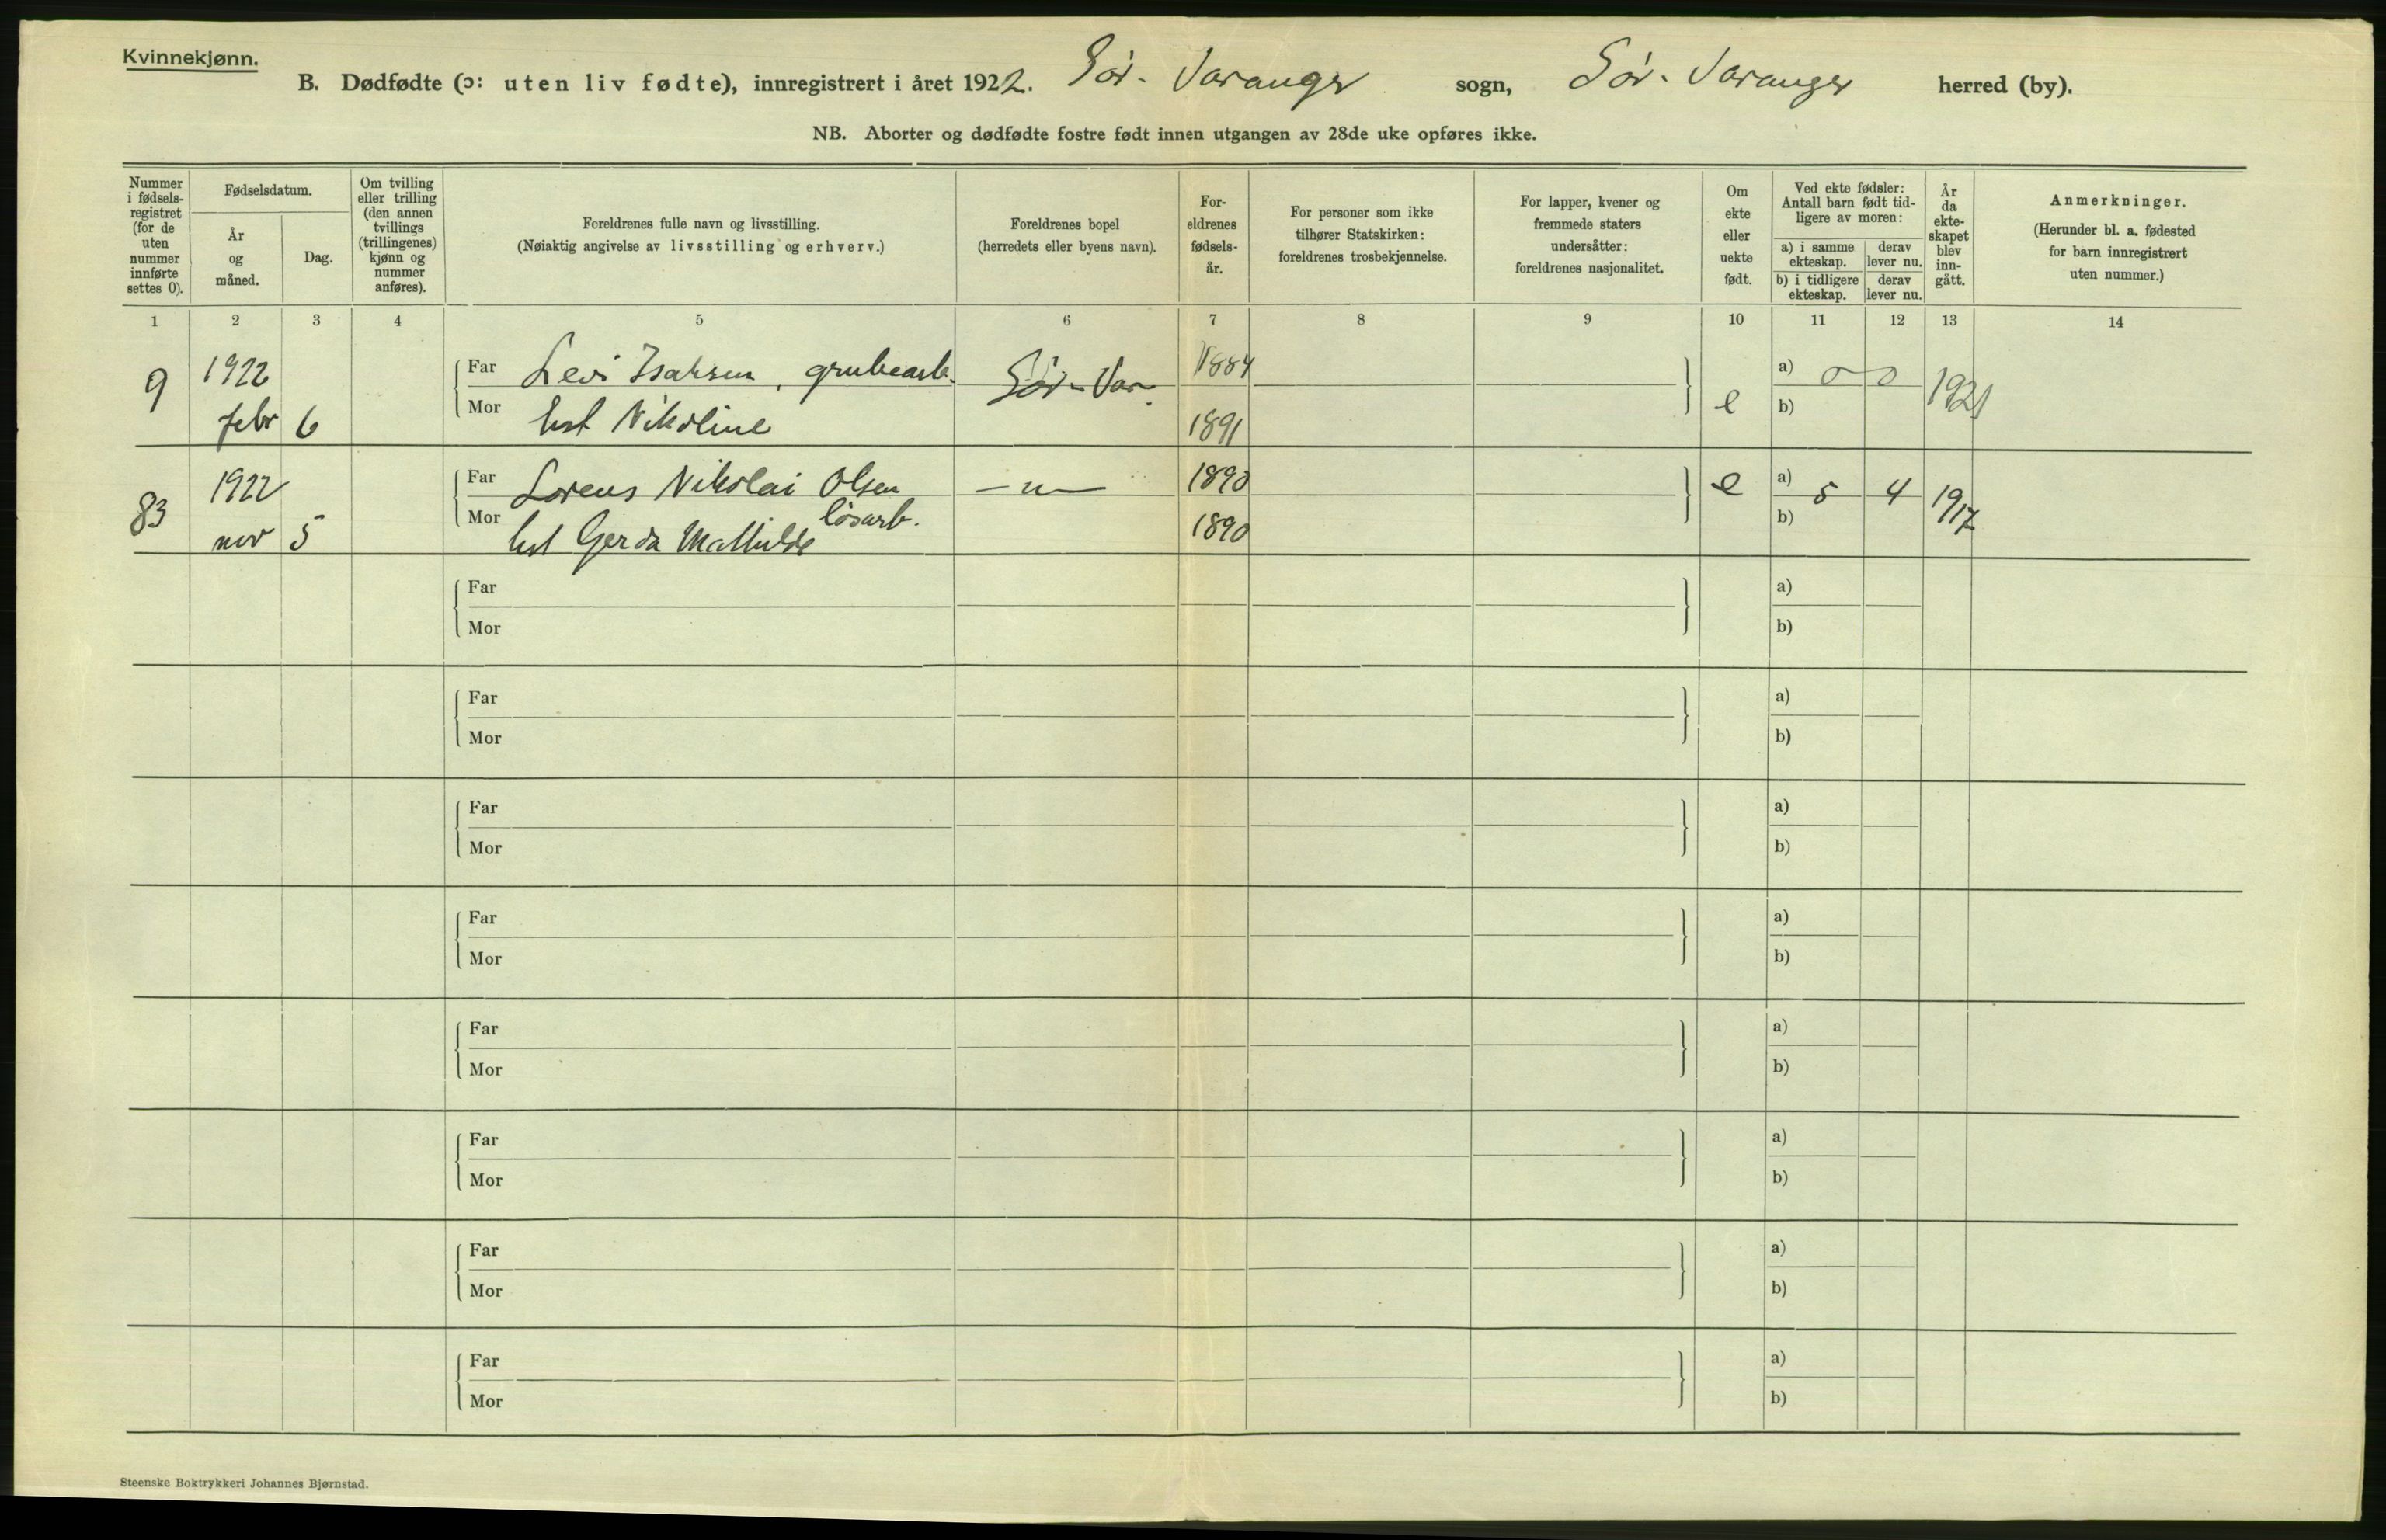 Kvinnekjønn.
B. Dødfødte (ɔ: uten liv fødte), innregistrert i året 1922. Sør-Varanger sogn, Sør-Varanger herred (by).
NB. Aborter og dødfødte fostre født innen utgangen av 28de uke opføres ikke.
Nummer
i fødsels-
registret
(for de
uten
nummer
innførte
settes 0).
Fødselsdatum.
År
og
måned.
Dag.
Om tvilling
eller trilling
(den annen
tvillings
(trillingenes)
kjønn og
nummer
anføres).
Foreldrenes fulle navn og livsstilling.
(Nøiaktig angivelse av livsstilling og erhverv.)
Foreldrenes bopel
(herredets eller byens navn).
For-
eldrenes
fødsels-
år.
For personer som ikke
tilhører Statskirken:
foreldrenes trosbekjennelse.
For lapper, kvener og
fremmede staters
undersåtter:
foreldrenes nasjonalitet.
Om
ekte
eller
uekte
født.
Ved ekte fødsler:
Antall barn født tid-
ligere av moren:
a) i samme
ekteskap.
derav
lever nu.
b) i tidligere
ekteskap.
derav
lever nu.
År
da
ekte-
skapet
blev
inn-
gått.
Anmerkninger.
(Herunder bl. a. fødested
for barn innregistrert
uten nummer.)
1 2 3 4 5 6 7 8 9 10 11 12 13 14
9 1922 Far Levi Isaksen, grubearb. Sør-Var. 1884 e a) 0 0 1921
febr 6 Mor hst Nikoline 1891 b)
83 1922 Far Lorens Nikolai Olsen —"— 1890 e a) 5 4 1917
løsarb.
nov 5 Mor hst Gerda Mathilde 1890 b)
Far a)
Mor b)
Far a)
Mor b)
Far a)
Mor b)
Far a)
Mor b)
Far a)
Mor b)
Far a)
Mor b)
Far a)
Mor b)
Far a)
Mor b)
Steenske Boktrykkeri Johannes Bjørnstad.